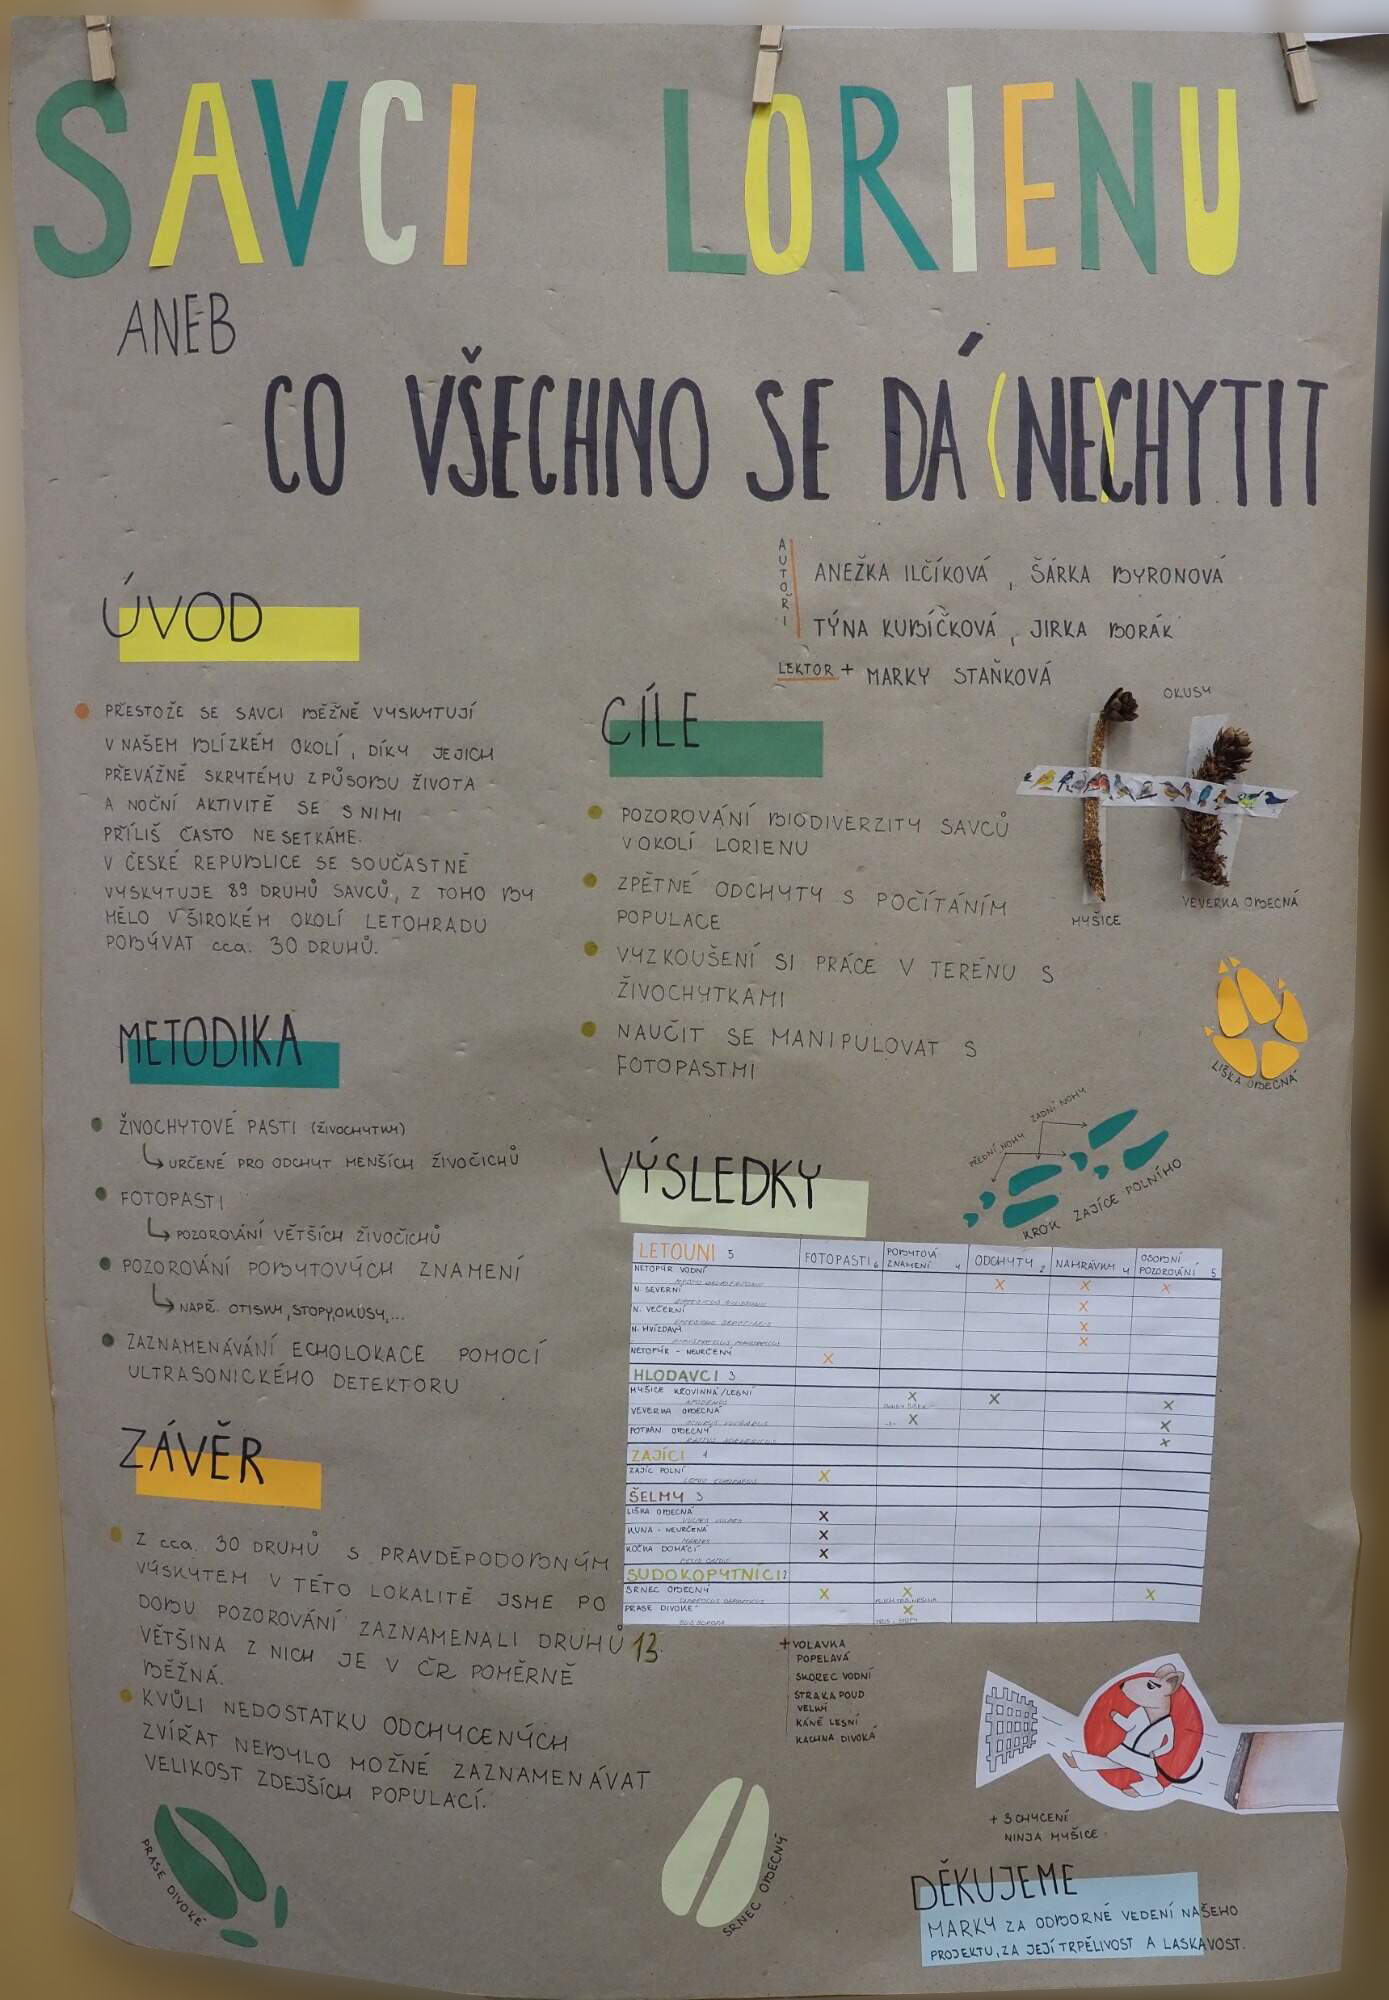 SAVCI LORIENU
ANEB
CO VŠECHNO SE DÁ (NE)CHYTIT
AUTOŘI
ANEŽKA ILČÍKOVÁ, ŠÁRKA BYRONOVÁ
TÝNA KUBÍČKOVÁ, JIRKA BORÁK
LEKTOR + MARKY STAŇKOVÁ
ÚVOD
PŘESTOŽE SE SAVCI BĚŽNĚ VYSKYTUJÍ
V NAŠEM BLÍZKÉM OKOLÍ, DÍKY JEJICH
PŘEVÁŽNĚ SKRYTÉMU ZPŮSOBU ŽIVOTA
A NOČNÍ AKTIVITĚ SE S NIMI
PŘÍLIŠ ČASTO NESETKÁME.
V ČESKÉ REPUBLICE SE SOUČASTNĚ
VYSKYTUJE 89 DRUHŮ SAVCŮ, Z TOHO BY
MĚLO V ŠIROKÉM OKOLÍ LETOHRADU
POBÝVAT cca. 30 DRUHŮ.
CÍLE
POZOROVÁNÍ BIODIVERZITY SAVCŮ
V OKOLÍ LORIENU
ZPĚTNÉ ODCHYTY S POČÍTÁNÍM
POPULACE
VYZKOUŠENÍ SI PRÁCE V TERÉNU S
ŽIVOCHYTKAMI
NAUČIT SE MANIPULOVAT S
FOTOPASTMI
OKUSY
MYŠICE
VEVERKA OBECNÁ
LIŠKA OBECNÁ
METODIKA
ŽIVOCHYTOVÉ PASTI (ŽIVOCHYTKY)
URČENÉ PRO ODCHYT MENŠÍCH ŽIVOČICHŮ
FOTOPASTI
POZOROVÁNÍ VĚTŠÍCH ŽIVOČICHŮ
POZOROVÁNÍ POBYTOVÝCH ZNAMENÍ
NAPŘ. OTISKY, STOPY, OKUSY,...
ZAZNAMENÁVÁNÍ ECHOLOKACE POMOCÍ
ULTRASONICKÉHO DETEKTORU
ZADNÍ NOHY
PŘEDNÍ NOHY
KROK ZAJÍCE POLNÍHO
VÝSLEDKY
LETOUNI 5 FOTOPASTI 6 POBYTOVÁ ZNAMENÍ 4 ODCHYTY 2 NAHRÁVKY 4 OSOBNÍ POZOROVÁNÍ 5
NETOPÝR VODNÍ X X X
N. SEVERNÍ X
N. VEČERNÍ X
N. HVÍZDAVÝ X
NETOPÝR - NEURČENÝ X
HLODAVCI 3
MYŠICE KŘOVINNÁ/LESNÍ X X X
APODEMUS
VEVERKA OBECNÁ X X
SCIURUS VULGARIS
POTKAN OBECNÝ X
ZAJÍCI 1
ZAJÍC POLNÍ X
LEPUS EUROPAEUS
ŠELMY 3
LIŠKA OBECNÁ X
VULPES VULPES
KUNA - NEURČENÁ X
MARTES
KOČKA DOMÁCÍ X
SUDOKOPYTNÍCI 2
SRNEC OBECNÝ X X X
CAPREOLUS CAPREOLUS
PRASE DIVOKÉ X
SUS SCROFA
+ VOLAVKA
POPELAVÁ
SKOREC VODNÍ
STRAKAPOUD
VELKÝ
KÁNĚ LESNÍ
KACHNA DIVOKÁ
ZÁVĚR
Z cca. 30 DRUHŮ S PRAVDĚPODOBNÝM
VÝSKYTEM V TÉTO LOKALITĚ JSME PO
DOBU POZOROVÁNÍ ZAZNAMENALI DRUHŮ 13.
VĚTŠINA Z NICH JE V ČR POMĚRNĚ
BĚŽNÁ.
KVŮLI NEDOSTATKU ODCHYCENÝCH
ZVÍŘAT NEBYLO MOŽNÉ ZAZNAMENÁVAT
VELIKOST ZDEJŠÍCH POPULACÍ.
PRASE DIVOKÉ
SRNEC OBECNÝ
+ SCHYCENÍ
NINJA MYŠICE
DĚKUJEME
MARKY ZA ODBORNÉ VEDENÍ NAŠEHO
PROJEKTU, ZA JEJÍ TRPĚLIVOST A LASKAVOST.